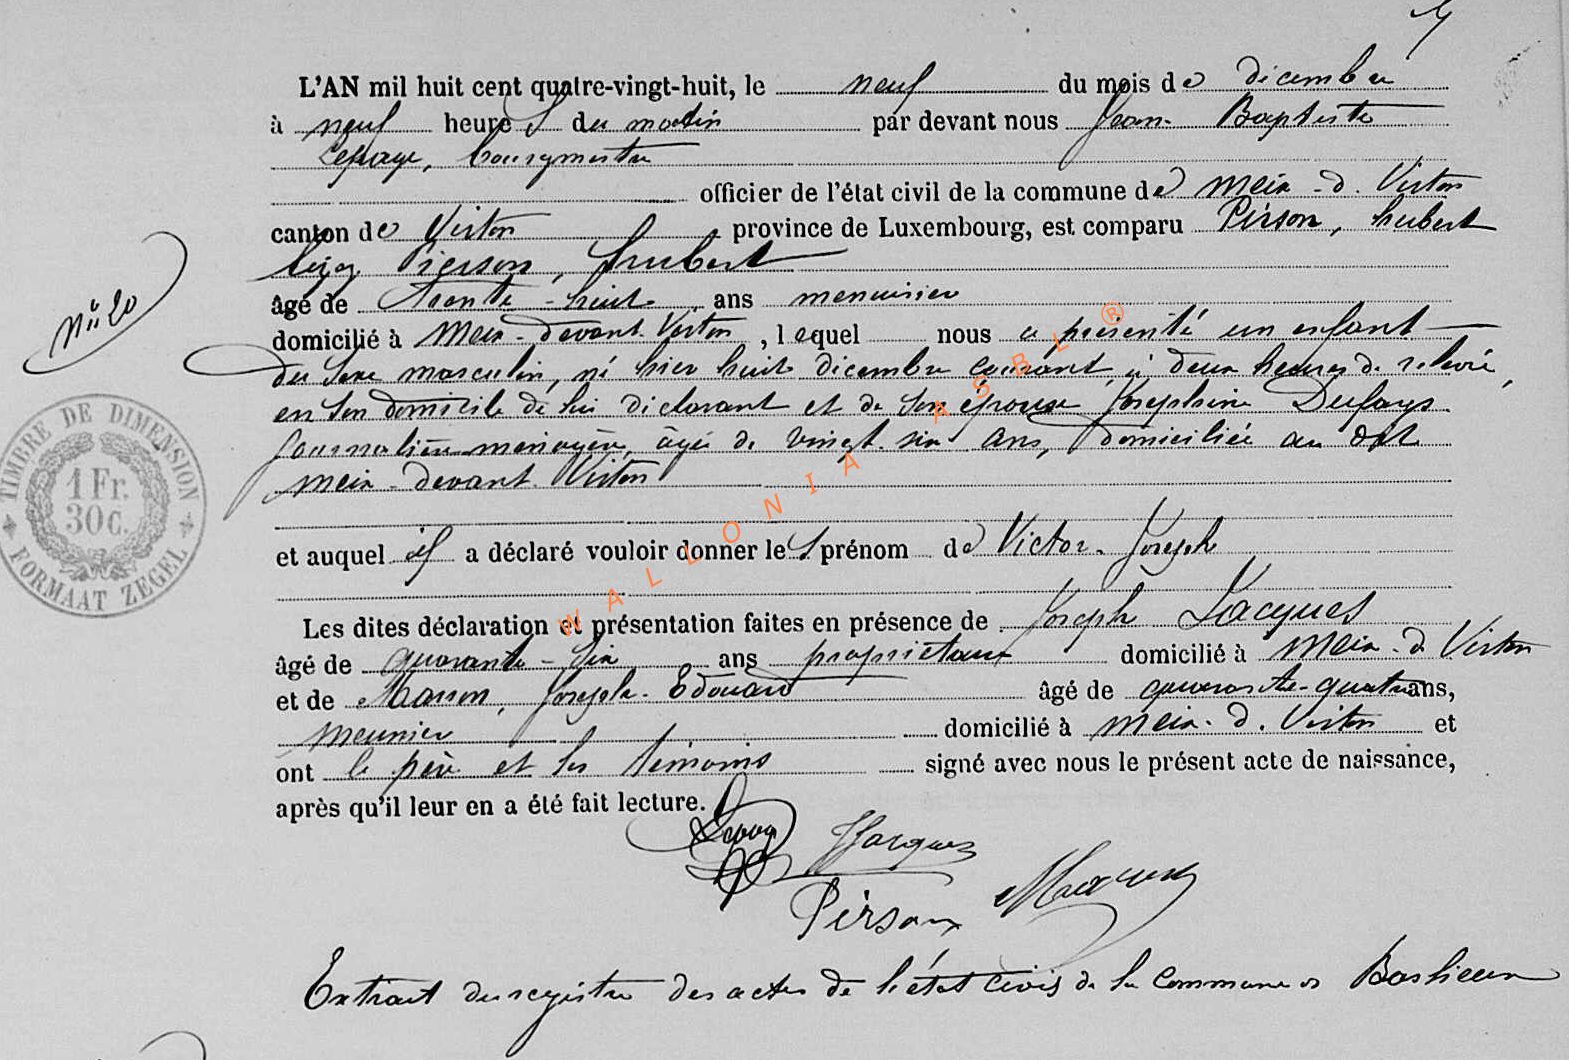 L'AN mil huit cent quatre-vingt-huit, le neuf du mois de décembre
à neuf heures du matin par devant nous Jean-Baptiste
Lepage, bourgmestre
officier de l'état civil de la commune de Meix-d. Virton
canton de Virton province de Luxembourg, est comparu Pérson, hubert
Pierson, hubert
âgé de trente-huit ans menuisier
domicilié à Meix-devant-Virton, lequel nous a présenté un enfant
du sexe masculin, né hier huit décembre courant, à deux heures de relevée,
en son domicile de lui déclarant et de son épouse Joséphine Dufays
journalière ménagère, âgée de vingt-six ans, domiciliée au dit
Meix-devant-Virton
et auquel il a déclaré vouloir donner les prénoms de Victor-Joseph
Les dites déclaration et présentation faites en présence de Joseph Jacques
âgé de quarante-six ans propriétaire domicilié à Meix-d Virton
et de Masson, Joseph-Edouard âgé de quarante-quatre ans,
meunier domicilié à Meix-d. Virton et
ont le père et les témoins signé avec nous le présent acte de naissance,
après qu'il leur en a été fait lecture.
JJacques
Pérson
Extrait du registre des actes de l'état civil de la commune de Baslieux
N° 20
TIMBRE DE DIMENSION
1 Fr.
30 C.
FORMAAT ZEGEL
WALLONIA ASBL ®